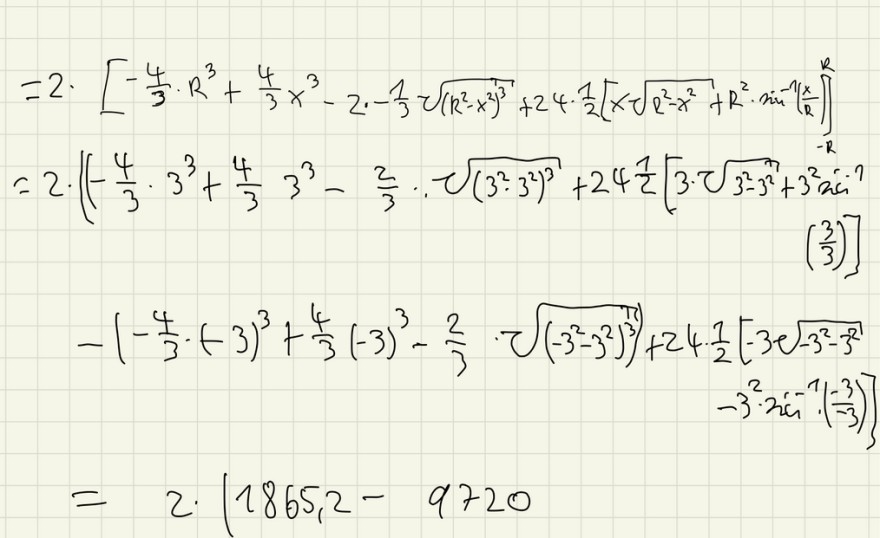 = 2 · [ -4/3 · R³ + 4/3 x³ - 2 · -1/3 √(R²-x²)³ + 24 · 1/2 [x √R²-x² + R² · sin⁻¹(x/R)]]_{-R}^{R}
= 2 · ((-4/3 · 3³ + 4/3 3³ - 2/3 · √(3²-3²)³ + 24 1/2 [3 · √3²-3² + 3² sin⁻¹
(3/3)]
- (-4/3 · (-3)³ + 4/3 (-3)³ - 2/3 · √(-3²-3²)³) + 24 · 1/2 [-3 √-3²-3²
-3² · sin⁻¹ · (-3/-3)]
= 2 · (1865,2 - 9720